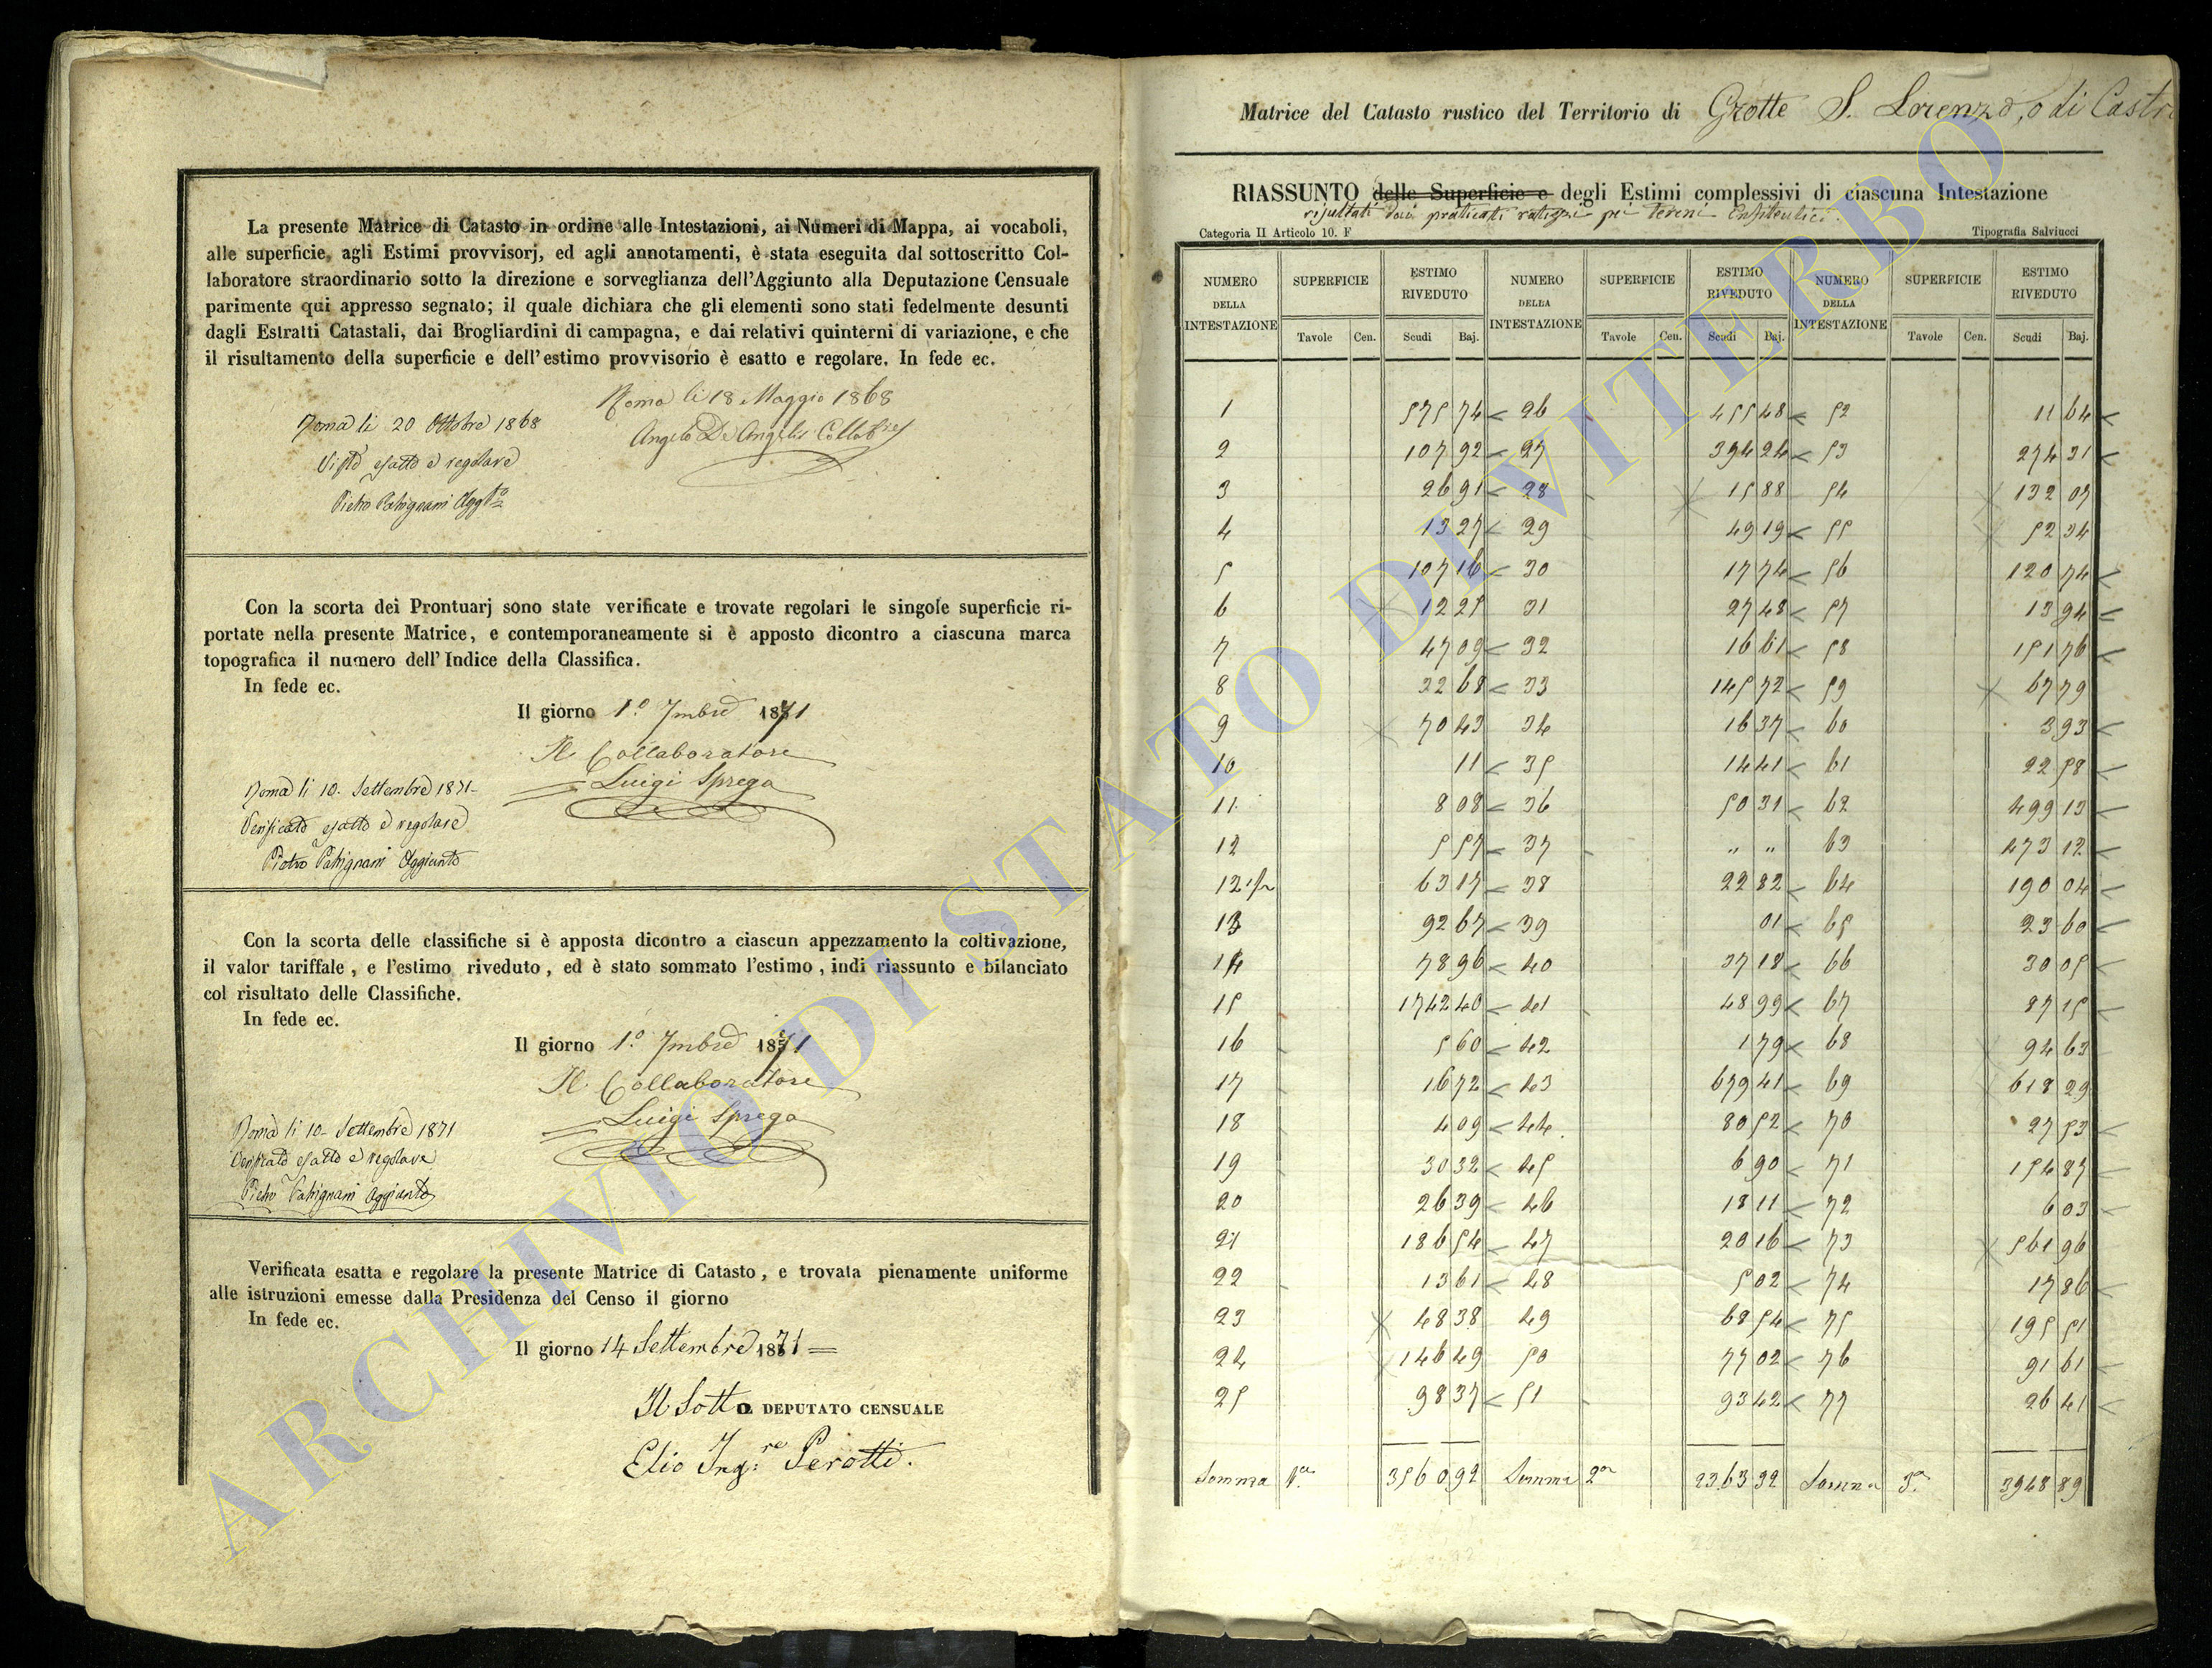 La presente Matrice di Catasto in ordine alle Intestazioni, ai Numeri di Mappa, ai vocaboli,
alle superficie, agli Estimi provvisorj, ed agli annotamenti, è stata eseguita dal sottoscritto Col-
laboratore straordinario sotto la direzione e sorveglianza dell'Aggiunto alla Deputazione Censuale
parimente qui appresso segnato; il quale dichiara che gli elementi sono stati fedelmente desunti
dagli Estratti Catastali, dai Brogliardini di campagna, e dai relativi quinterni di variazione, e che
il risultamento della superficie e dell'estimo provvisorio è esatto e regolare. In fede ec.
Roma li 18 Maggio 1868
Angelo De Angelis Collabre
Roma li 20 Ottobre 1868
Visto esatto e regolare
Pietro Patrignani Aggto
Con la scorta dei Prontuarj sono state verificate e trovate regolari le singole superficie ri-
portate nella presente Matrice, e contemporaneamente si è apposto dicontro a ciascuna marca
topografica il numero dell'Indice della Classifica.
In fede ec.
Il giorno 1º 7mbre 1871
Il Collaboratore
Luigi Sprega
Roma li 10. Settembre 1871
Verificato esatto e regolare
Pietro Patrignani Aggiunto
Con la scorta delle classifiche si è apposta dicontro a ciascun appezzamento la coltivazione,
il valor tariffale, e l'estimo riveduto, ed è stato sommato l'estimo, indi riassunto e bilanciato
col risultato delle Classifiche.
In fede ec.
Il giorno 1º 7mbre 1871
Il Collaboratore
Luigi Sprega
Roma li 10 Settembre 1871
Verificato esatto e regolare
Pietro Patrignani Aggiunto
Verificata esatta e regolare la presente Matrice di Catasto, e trovata pienamente uniforme
alle istruzioni emesse dalla Presidenza del Censo il giorno
In fede ec.
Il giorno 14 Settembre 1871
Il Sotto DEPUTATO CENSUALE
Elio Ingre Perotti.
Matrice del Catasto rustico del Territorio di Grotte S. Lorenzo, o di Castro
RIASSUNTO delle Superficie e degli Estimi complessivi di ciascuna Intestazione
risultati dai praticati pei terreni Enfiteutici.
Categoria II Articolo 10. F Tipografia Salviucci
NUMERO DELLA INTESTAZIONE SUPERFICIE ESTIMO RIVEDUTO NUMERO DELLA INTESTAZIONE SUPERFICIE ESTIMO RIVEDUTO NUMERO DELLA INTESTAZIONE SUPERFICIE ESTIMO RIVEDUTO
Tavole Cen. Scudi Baj. Tavole Cen. Scudi Baj. Tavole Cen. Scudi Baj.
1 575 74 26 455 48 52 11 64
2 107 92 27 394 24 53 274 31
3 26 91 28 15 88 54 132 07
4 13 27 29 49 19 55 52 34
5 107 16 30 17 74 56 120 74
6 12 25 31 27 48 57 13 94
7 47 09 32 16 61 58 151 76
8 22 68 33 145 72 59 67 79
9 70 43 34 16 37 60 3 93
10 11 35 14 41 61 22 58
11 8 08 36 50 31 62 499 13
12 5 57 37 " " 63 473 12
12 1/2 63 17 38 22 82 64 190 04
13 92 67 39 01 65 23 60
14 78 96 40 37 18 66 30 05
15 1742 40 41 48 99 67 87 15
16 5 60 42 1 79 68 94 63
17 16 72 43 679 41 69 618 29
18 4 09 44 80 52 70 27 53
19 30 32 45 6 90 71 154 87
20 26 39 46 18 11 72 6 03
21 186 54 47 20 16 73 561 96
22 13 61 48 5 02 74 17 86
23 48 38 49 68 54 75 195 51
24 146 49 50 77 02 76 91 61
25 98 37 51 93 42 77 26 41
Somma 1a 3560 92 Somma 2a 2363 32 Somma 3a 3948 89
ARCHIVIO DI STATO DI VITERBO